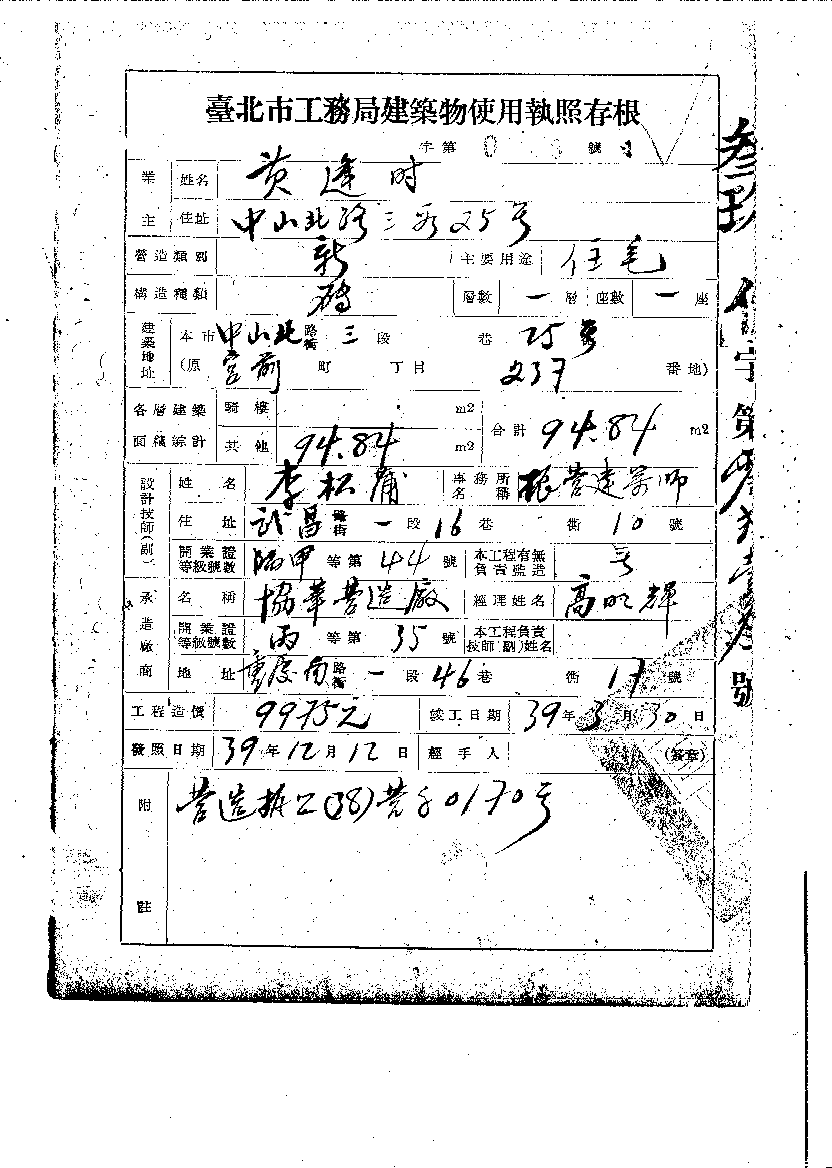 臺北市工務局建築物使用執照存根
字第 0 號
業主 姓名 黃逢時
住址 中山北路三段25号
營造類別 新 主要用途 住宅
構造種類 磚 層數 一 層 座數 一 座
建築地址 本市 中山北 路街 三 段 巷 25号
(原 宮前 町 丁目 237 番地)
各層建築面積綜計 騎樓 m2 合計 94.84 m2
其他 94.84 m2
設計技師(副) 姓名 李松蒲 事務所名稱 建築師
住址 武昌 路街 一 段 16 巷 衖 10 號
開業證等級號數 甲 等第 44 號 本工程有無負責監造
承造廠商 名稱 協華营造廠 經理姓名 高明輝
開業證等級號數 丙 等第 35 號 本工程負責技師(副)姓名
地址 重慶南 路街 一 段 46 巷 衖 17 號
工程造價 9975元 竣工日期 39 年 3 月 30 日
發照日期 39 年 12 月 12 日 經手人 (簽章)
附註 营造 (38)营字0170号
字第 號